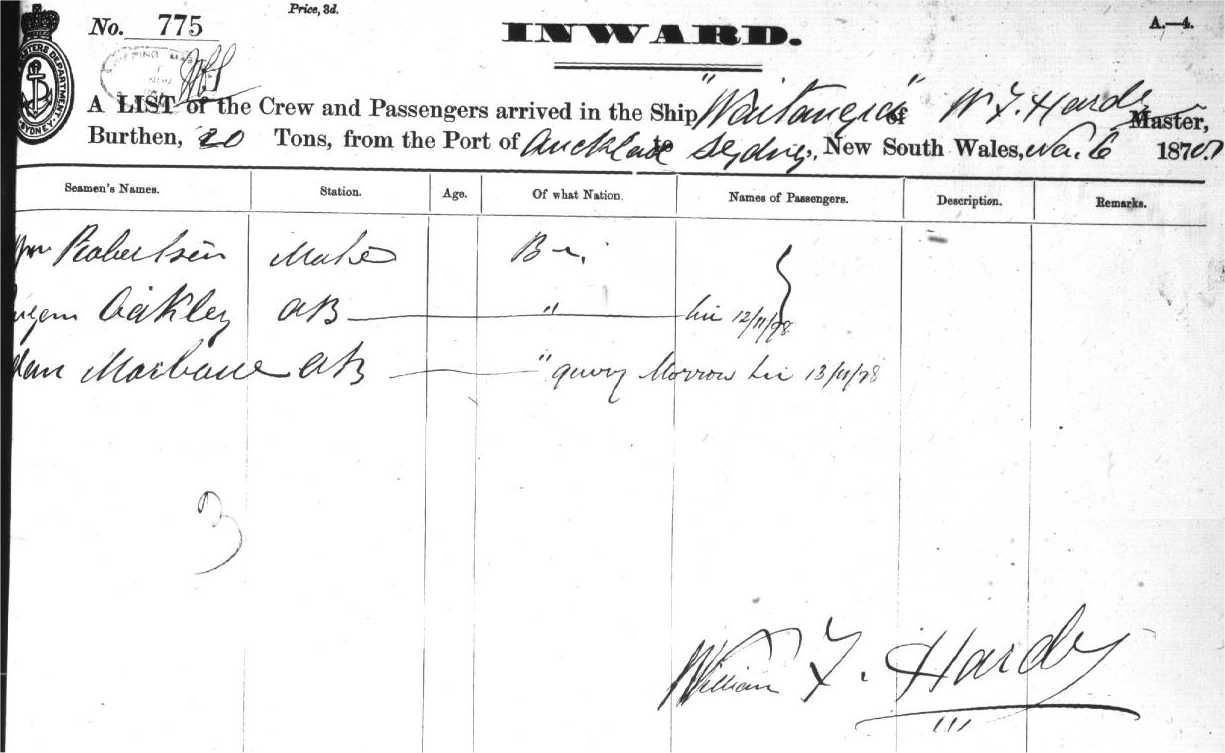 Price, 3d.
No. 775
INWARD.
A.—4.
DEPARTMENT SYDNEY
A LIST of the Crew and Passengers arrived in the Ship "Waitangi" of W F. Hardy Master,
Burthen, 20 Tons, from the Port of Auckland to Sydney, New South Wales, Nov. 6 187
Seamen's Names. Station. Age. Of what Nation. Names of Passengers. Description. Remarks.
Robertson Mate Br.
Oakley AB " 12/11/78
AB " Morrow 13/11/78
3
William F. Hardy